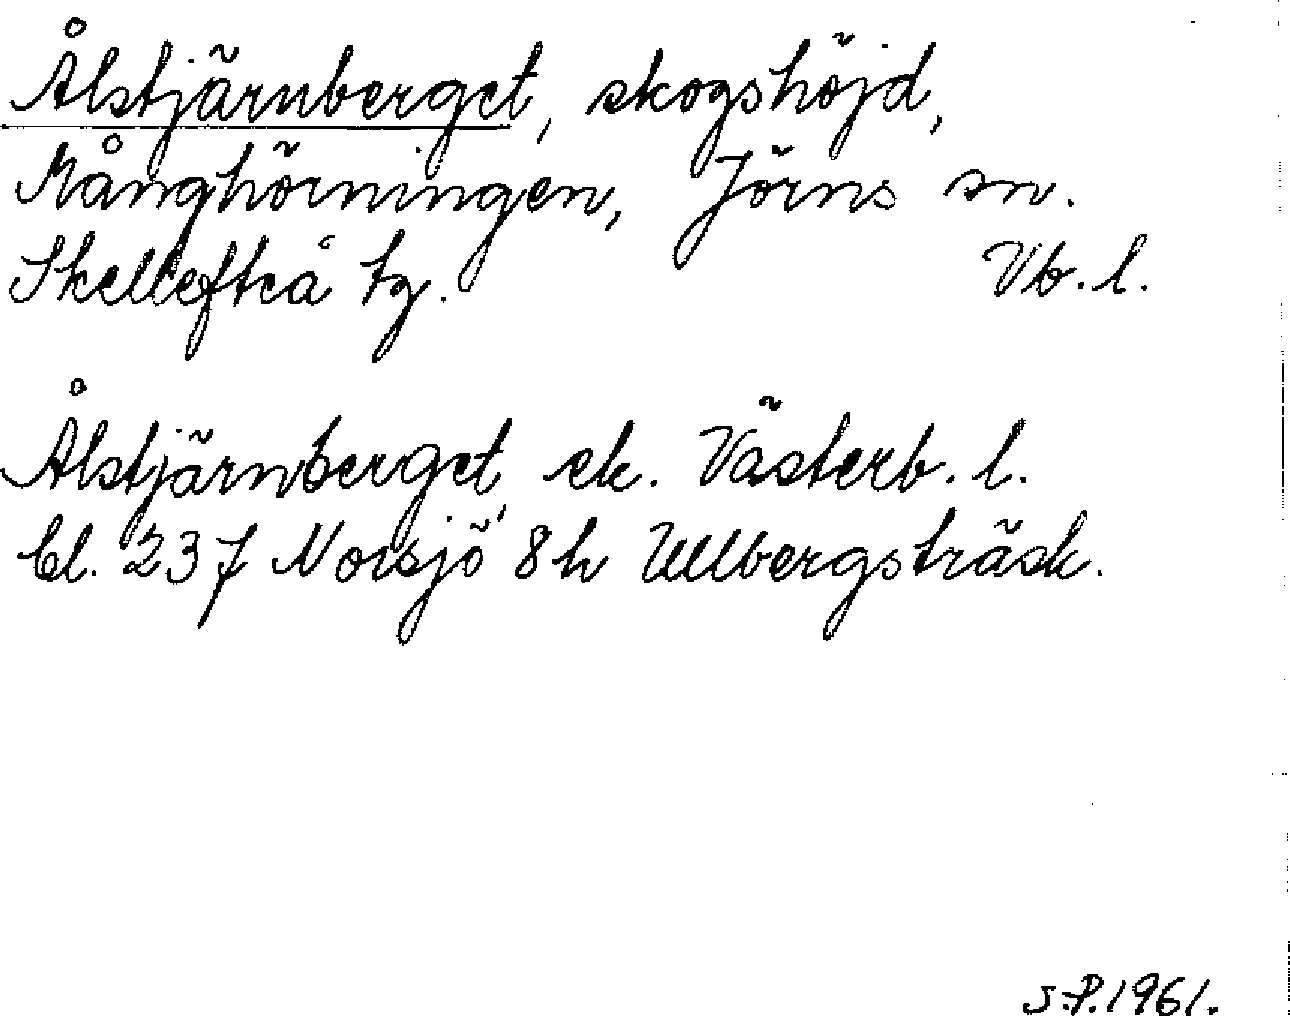 Ålstjärnberget, skogshöjd,
Månghörningen, Jörns sn.
Skellefteå tg. Vb. l.
Ålstjärnberget, ek. Västerb. l.
bl. 237 Norsjö 8h Ullbergsträsk.
S.P. 1961.